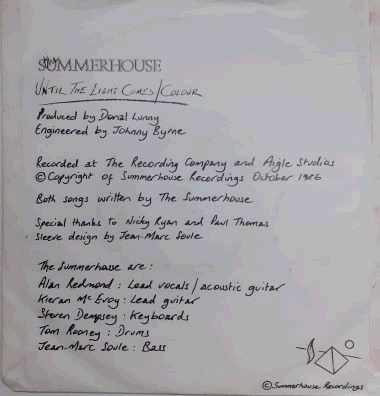 THE SUMMERHOUSE
UNTIL THE LIGHT COMES/COLOUR
Produced by Donal Lunny
Engineered by Johnny Byrne
Recorded at The Recording Company and Aigle Studios
© Copyright of Summerhouse Recordings October 1986
Both songs written by The Summerhouse
Special thanks to Nicky Ryan and Paul Thomas
Sleeve design by Jean-Marc Soule
The Summerhouse are:
Alan Redmond: Lead vocals/acoustic guitar
Kieran McEvoy: Lead guitar
Steven Dempsey: Keyboards
Tom Rooney: Drums
Jean-Marc Soule: Bass
© Summerhouse Recordings